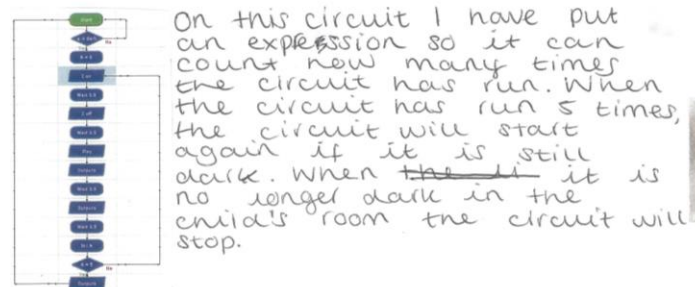 Start
No
Wait 0.5
Wait 0.5
Outputs
Wait 0.5
Outputs
Wait 0.5
No
Outputs
On this circuit I have put
an expression so it can
count how many times
the circuit has run. When
the circuit has run 5 times,
the circuit will start
again if it is still
dark. When it is
no longer dark in the
child's room the circuit will
stop.